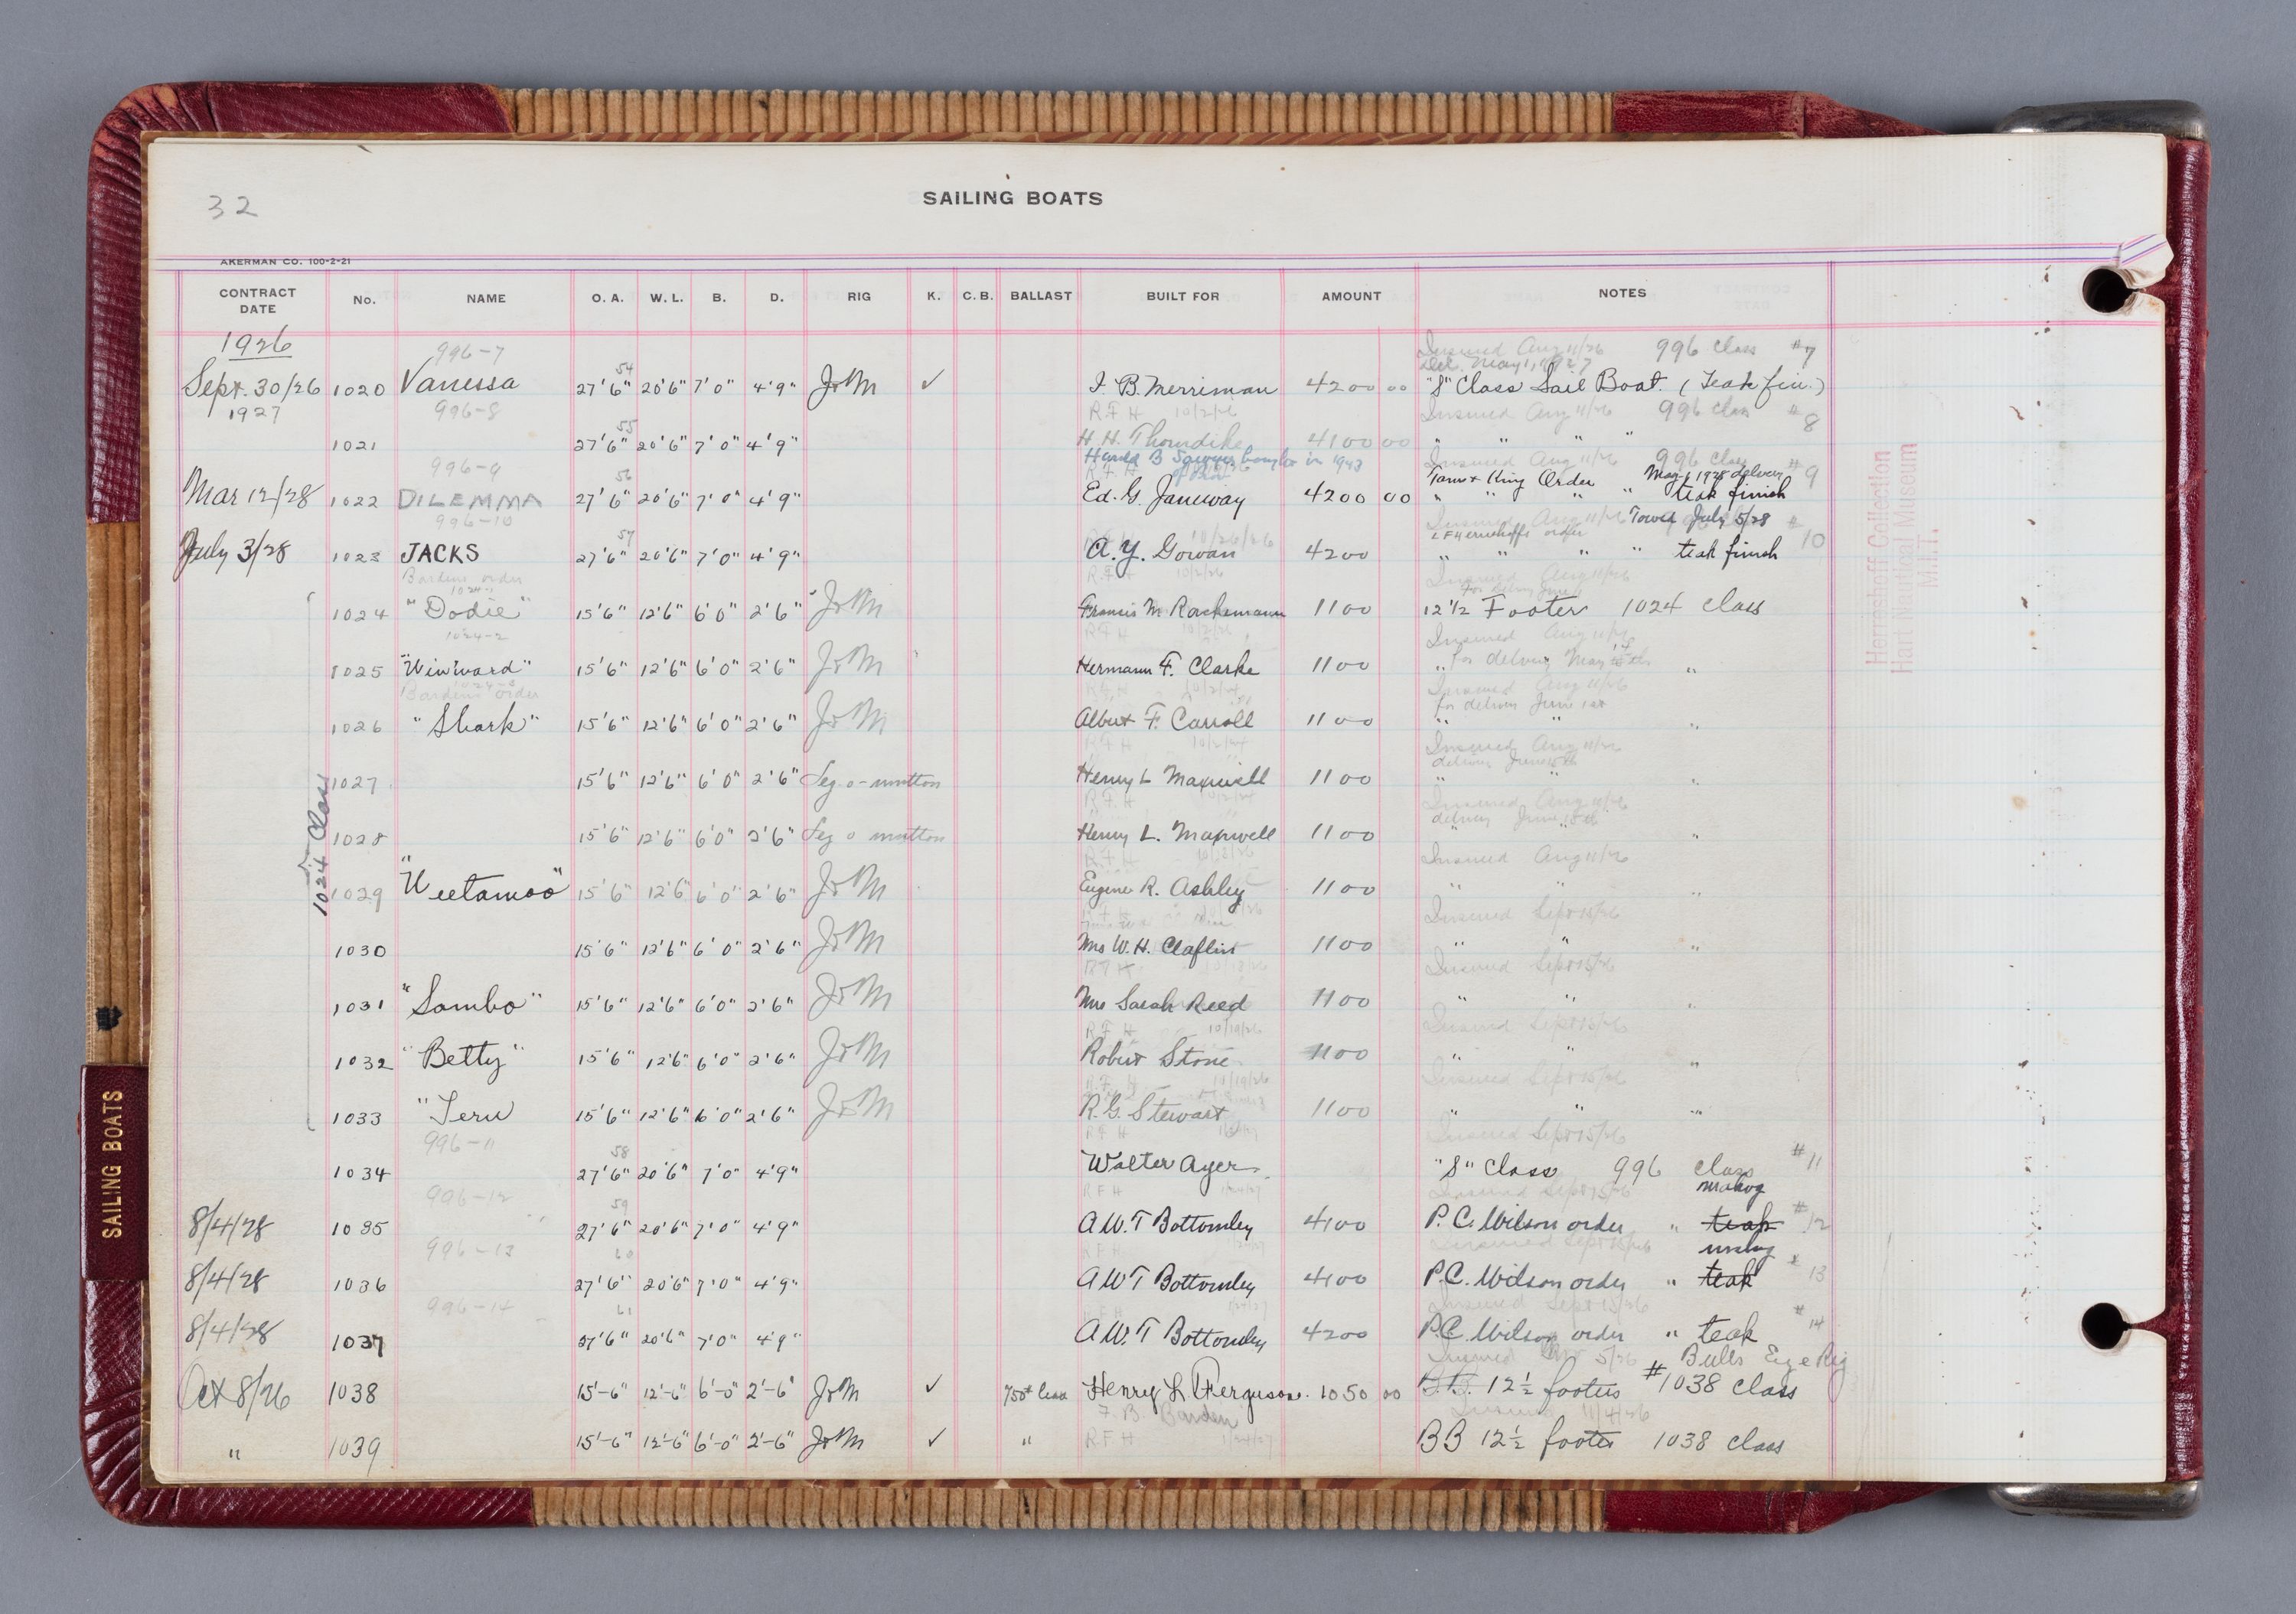 32
SAILING BOATS
AKERMAN CO. 100-2-21
CONTRACT DATE No. NAME O. A. W. L. B. D. RIG K. C. B. BALLAST BUILT FOR AMOUNT NOTES
1926
996-7 Insured Aug 11/26 996 Class #7
54 Del. May 1, 1927
Sept. 30/26 1020 Vanessa 27'6" 20'6" 7'0" 4'9" J&M ✓ I. B. Merriman 4200 00 "S" Class Sail Boat. (Teak fin.)
1927 996-8 R F H 10/2/26 Insured Aug 11/26 996 Class #8
55
1021 27'6" 20'6" 7'0" 4'9" H. H. Thorndike 4100 00 " " " "
Harold B Sawyer bought in 1943
996-9 R F H Insured Aug 11/26 996 Class #9
56 Order May 1 1928 delivery
Mar 12/28 1022 DILEMMA 27'6" 20'6" 7'0" 4'9" Ed. G. Janeway 4200 00 " " " " teak finish
996-10 Insured Aug 11/26 Towed July 5/28 #10
57 10/26/26 order
July 3/28 1023 JACKS 27'6" 20'6" 7'0" 4'9" A. Y. Gowan 4200 " " " " teak finish
Bardens order R.F H 10/2/26 Insured Aug 11/26
1024-1
1024 "Dodie" 15'6" 12'6" 6'0" 2'6" J&M Francis M. Rackemann 1100 12 1/2 Footer 1024 Class
1024-2 R F H 10/2/26 Insured Aug 11/26
1025 "Winward" 15'6" 12'6" 6'0" 2'6" J&M Hermann F. Clarke 1100 " for delivery May "
1024-3
Bardens order R F H 10/2/26 Insured Aug 11/26
for delivery June 1st
1026 "Shark" 15'6" 12'6" 6'0" 2'6" J&M Albert F. Carroll 1100 " " "
R F H 10/2/26 Insured Aug 11/26
delivery June 15th
1027 15'6" 12'6" 6'0" 2'6" Leg-o-mutton Henry L Maxwell 1100 " " "
R F H Insured Aug 11/26
delivery June 15th
1024 Class
1028 15'6" 12'6" 6'0" 2'6" Leg o mutton Henry L. Maxwell 1100 " " "
R F H Insured Aug 11/26
1029 "Weetamoo" 15'6" 12'6" 6'0" 2'6" J&M Eugene R. Ashley 1100 " " "
Insured Sept 15/26
1030 15'6" 12'6" 6'0" 2'6" J&M Mrs W. H. Claflin 1100 " " "
R F H Insured Sept 15/26
1031 "Sambo" 15'6" 12'6" 6'0" 2'6" J&M Mrs Sarah Reed 1100 " " "
R F H 10/19/26 Insured Sept 15/26
1032 "Betty" 15'6" 12'6" 6'0" 2'6" J&M Robert Stone 1100 " " "
R F H 10/19/26 Insured Sept 15/26
1033 "Teru 15'6" 12'6" 6'0" 2'6" J&M R. G. Stewart 1100 " " "
996-11 R F H Insured Sept 15/26
58
1034 27'6" 20'6" 7'0" 4'9" Walter Ayer "S" Class 996 class #11
996-12 R F H 1/24/27 Insured Sept 15/26 mahog
59
8/4/28 1035 27'6" 20'6" 7'0" 4'9" A. W. T Bottomley 4100 P. C. Wilson order " teak #12
996-13 R F H Insured Sept 15/26 mahog
60
8/4/28 1036 27'6" 20'6" 7'0" 4'9" A W T Bottomley 4100 P.C. Wilson order " teak #13
996-14 R F H 1/24/27 Insured Sept 15/26
61
8/4/28 1037 27'6" 20'6" 7'0" 4'9" A. W. T Bottomley 4200 P.C. Wilson order " teak #14
Insured Bulls Eye Rig
Oct 8/26 1038 15'-6" 12'-6" 6'-0" 2'-6" J&M ✓ 750# lead Henry L Ferguson. 1050 00 B.B. 12 1/2 footers #1038 class
F. B. Barden Insured 11/4/26
" 1039 15'-6" 12'-6" 6'-0" 2'-6" J&M ✓ " R F H 1/24/27 BB 12 1/2 footer 1038 class
Herreshoff Collection
Hart Nautical Museum
M.I.T.
SAILING BOATS